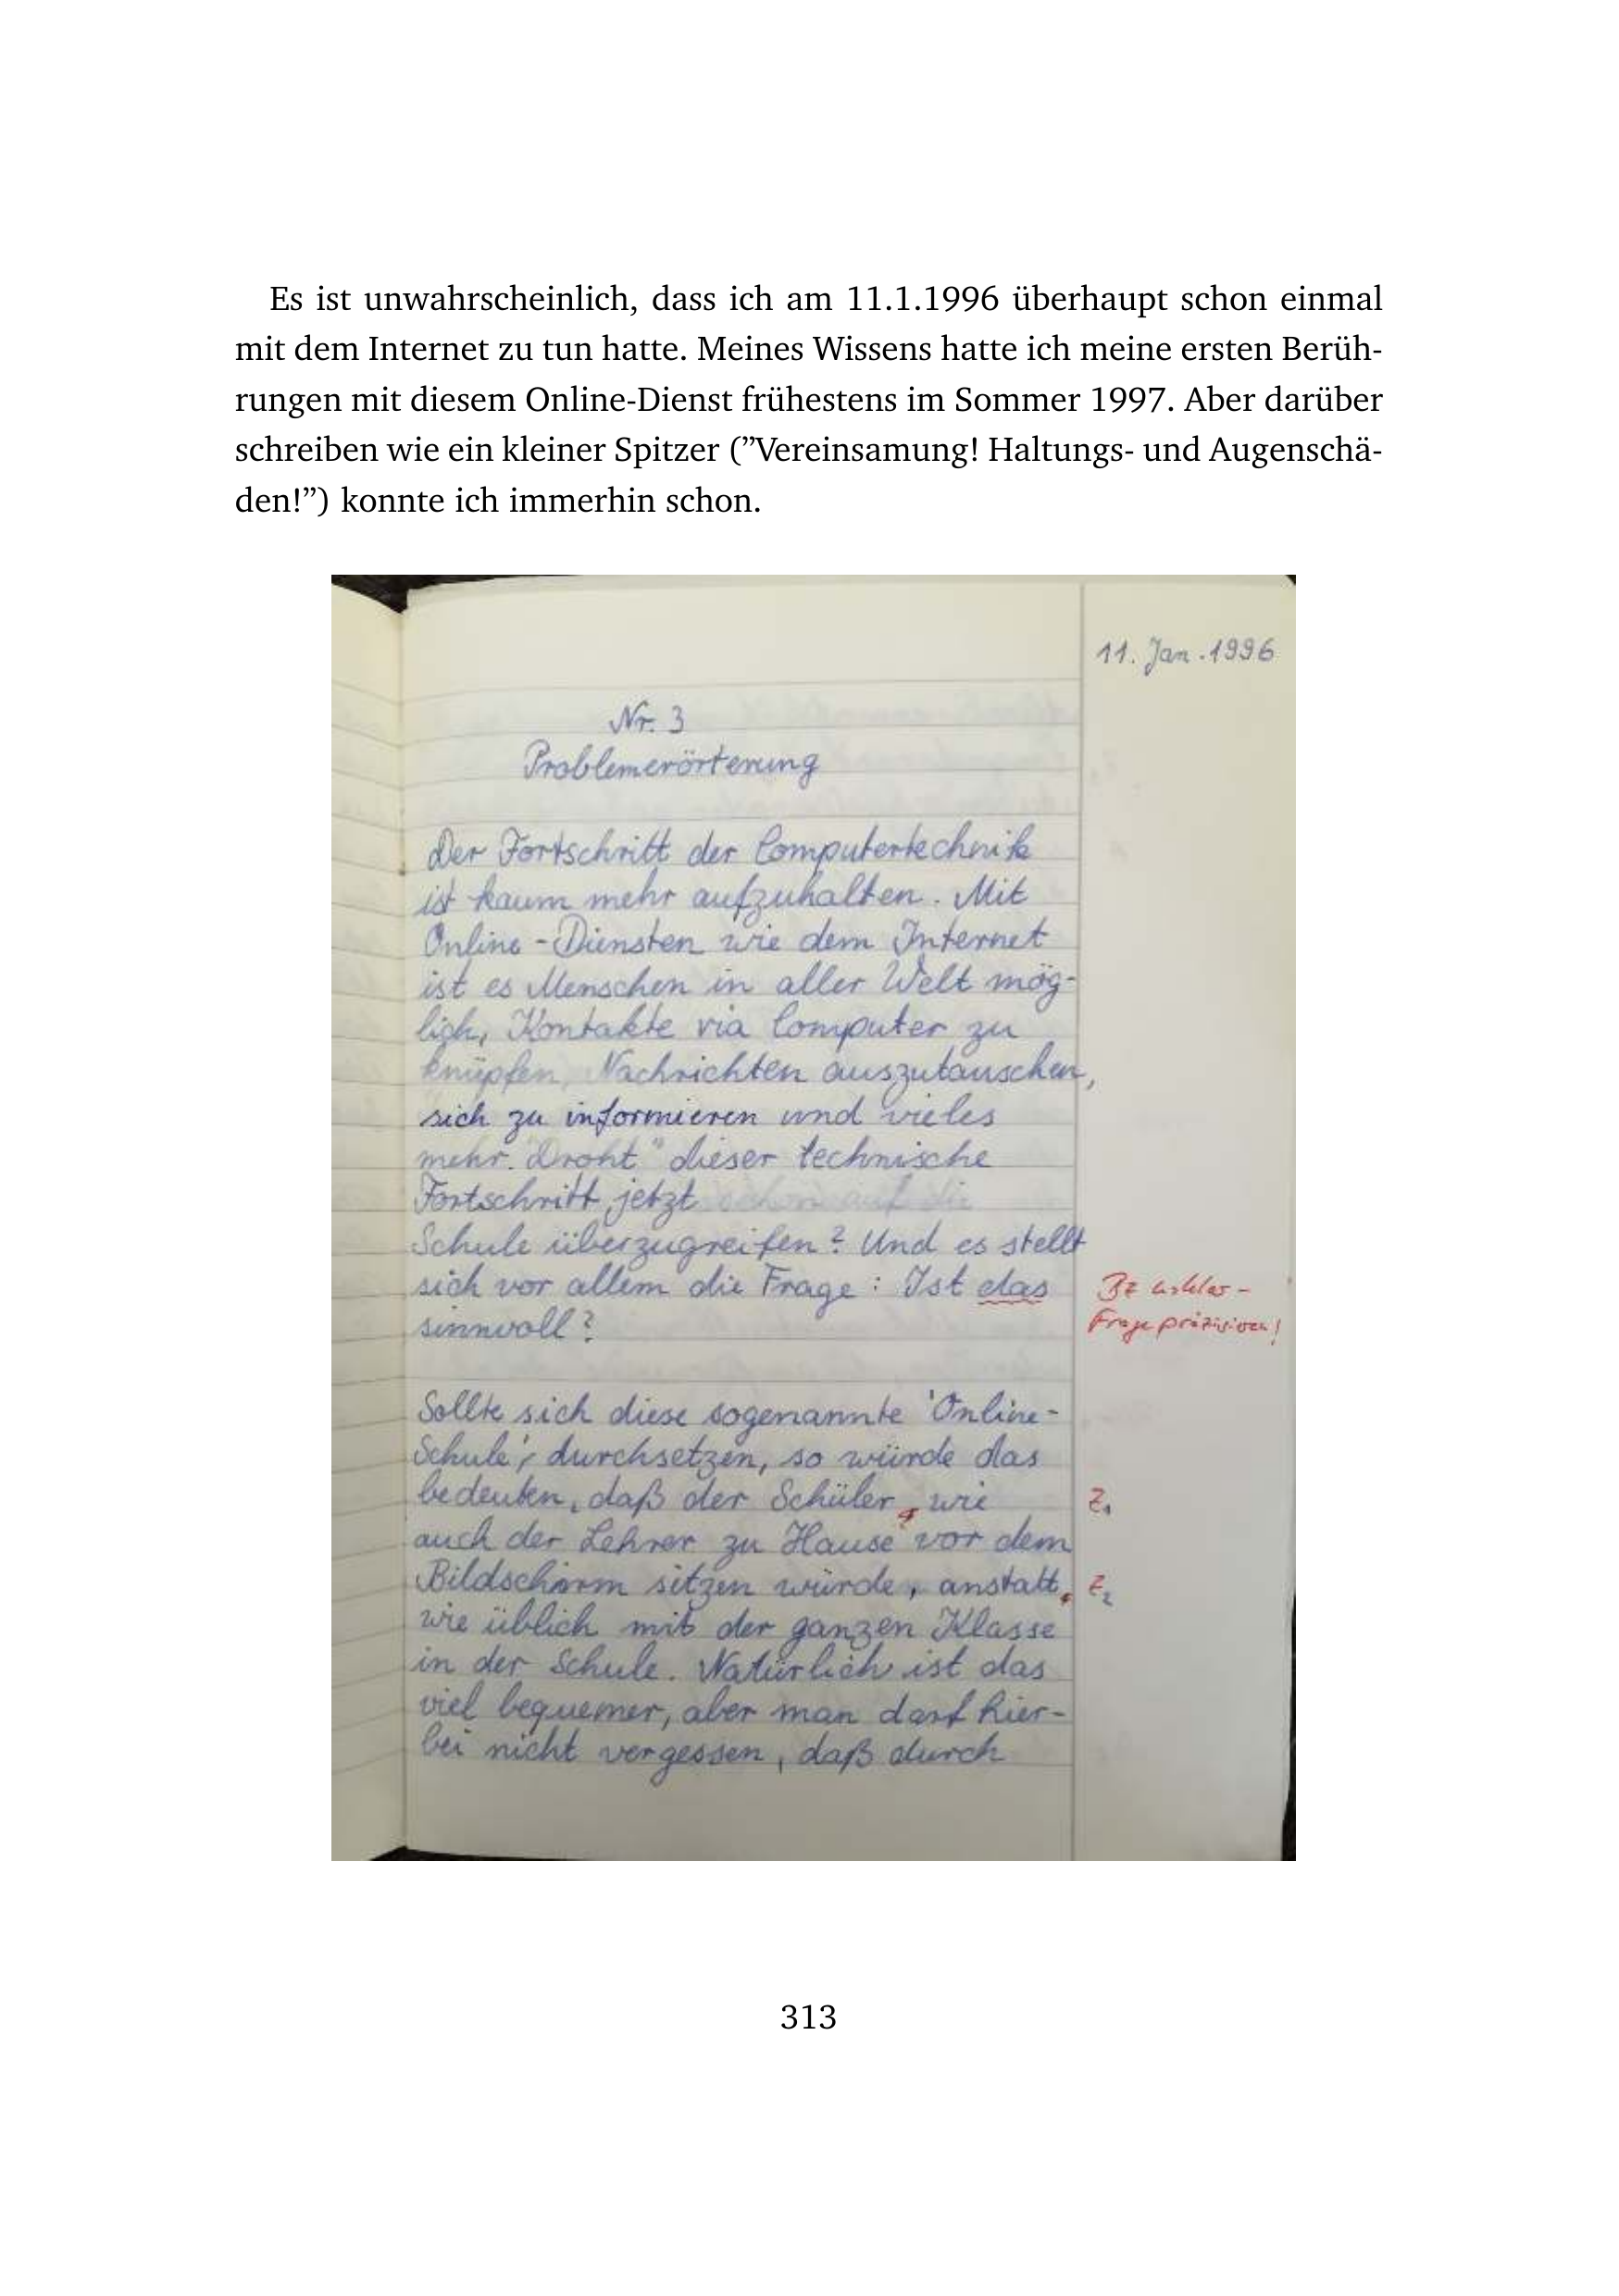 Es ist unwahrscheinlich, dass ich am 11.1.1996 überhaupt schon einmal
mit dem Internet zu tun hatte. Meines Wissens hatte ich meine ersten Berüh-
rungen mit diesem Online-Dienst frühestens im Sommer 1997. Aber darüber
schreiben wie ein kleiner Spitzer (”Vereinsamung! Haltungs- und Augenschä-
den!”) konnte ich immerhin schon.
11. Jan. 1996
Nr. 3
Problemerörterung
Der Fortschritt der Computertechnik
ist kaum mehr aufzuhalten. Mit
Online-Diensten wie dem Internet
ist es Menschen in aller Welt mög-
lich, Kontakte via Computer zu
knüpfen, Nachrichten auszutauschen,
sich zu informieren und vieles
mehr. "Droht" dieser technische
Fortschritt jetzt schon auf die
Schule überzugreifen? Und es stellt
sich vor allem die Frage: Ist das
sinnvoll?
Bz unklar -
Frage präzisieren!
Sollte sich diese sogenannte 'Online-
Schule', durchsetzen, so würde das
bedeuten, daß der Schüler, wie
Z1
auch der Lehrer zu Hause vor dem
Bildschirm sitzen würde, anstatt,
Z2
wie üblich mit der ganzen Klasse
in der Schule. Natürlich ist das
viel bequemer, aber man darf hier-
bei nicht vergessen, daß durch
313